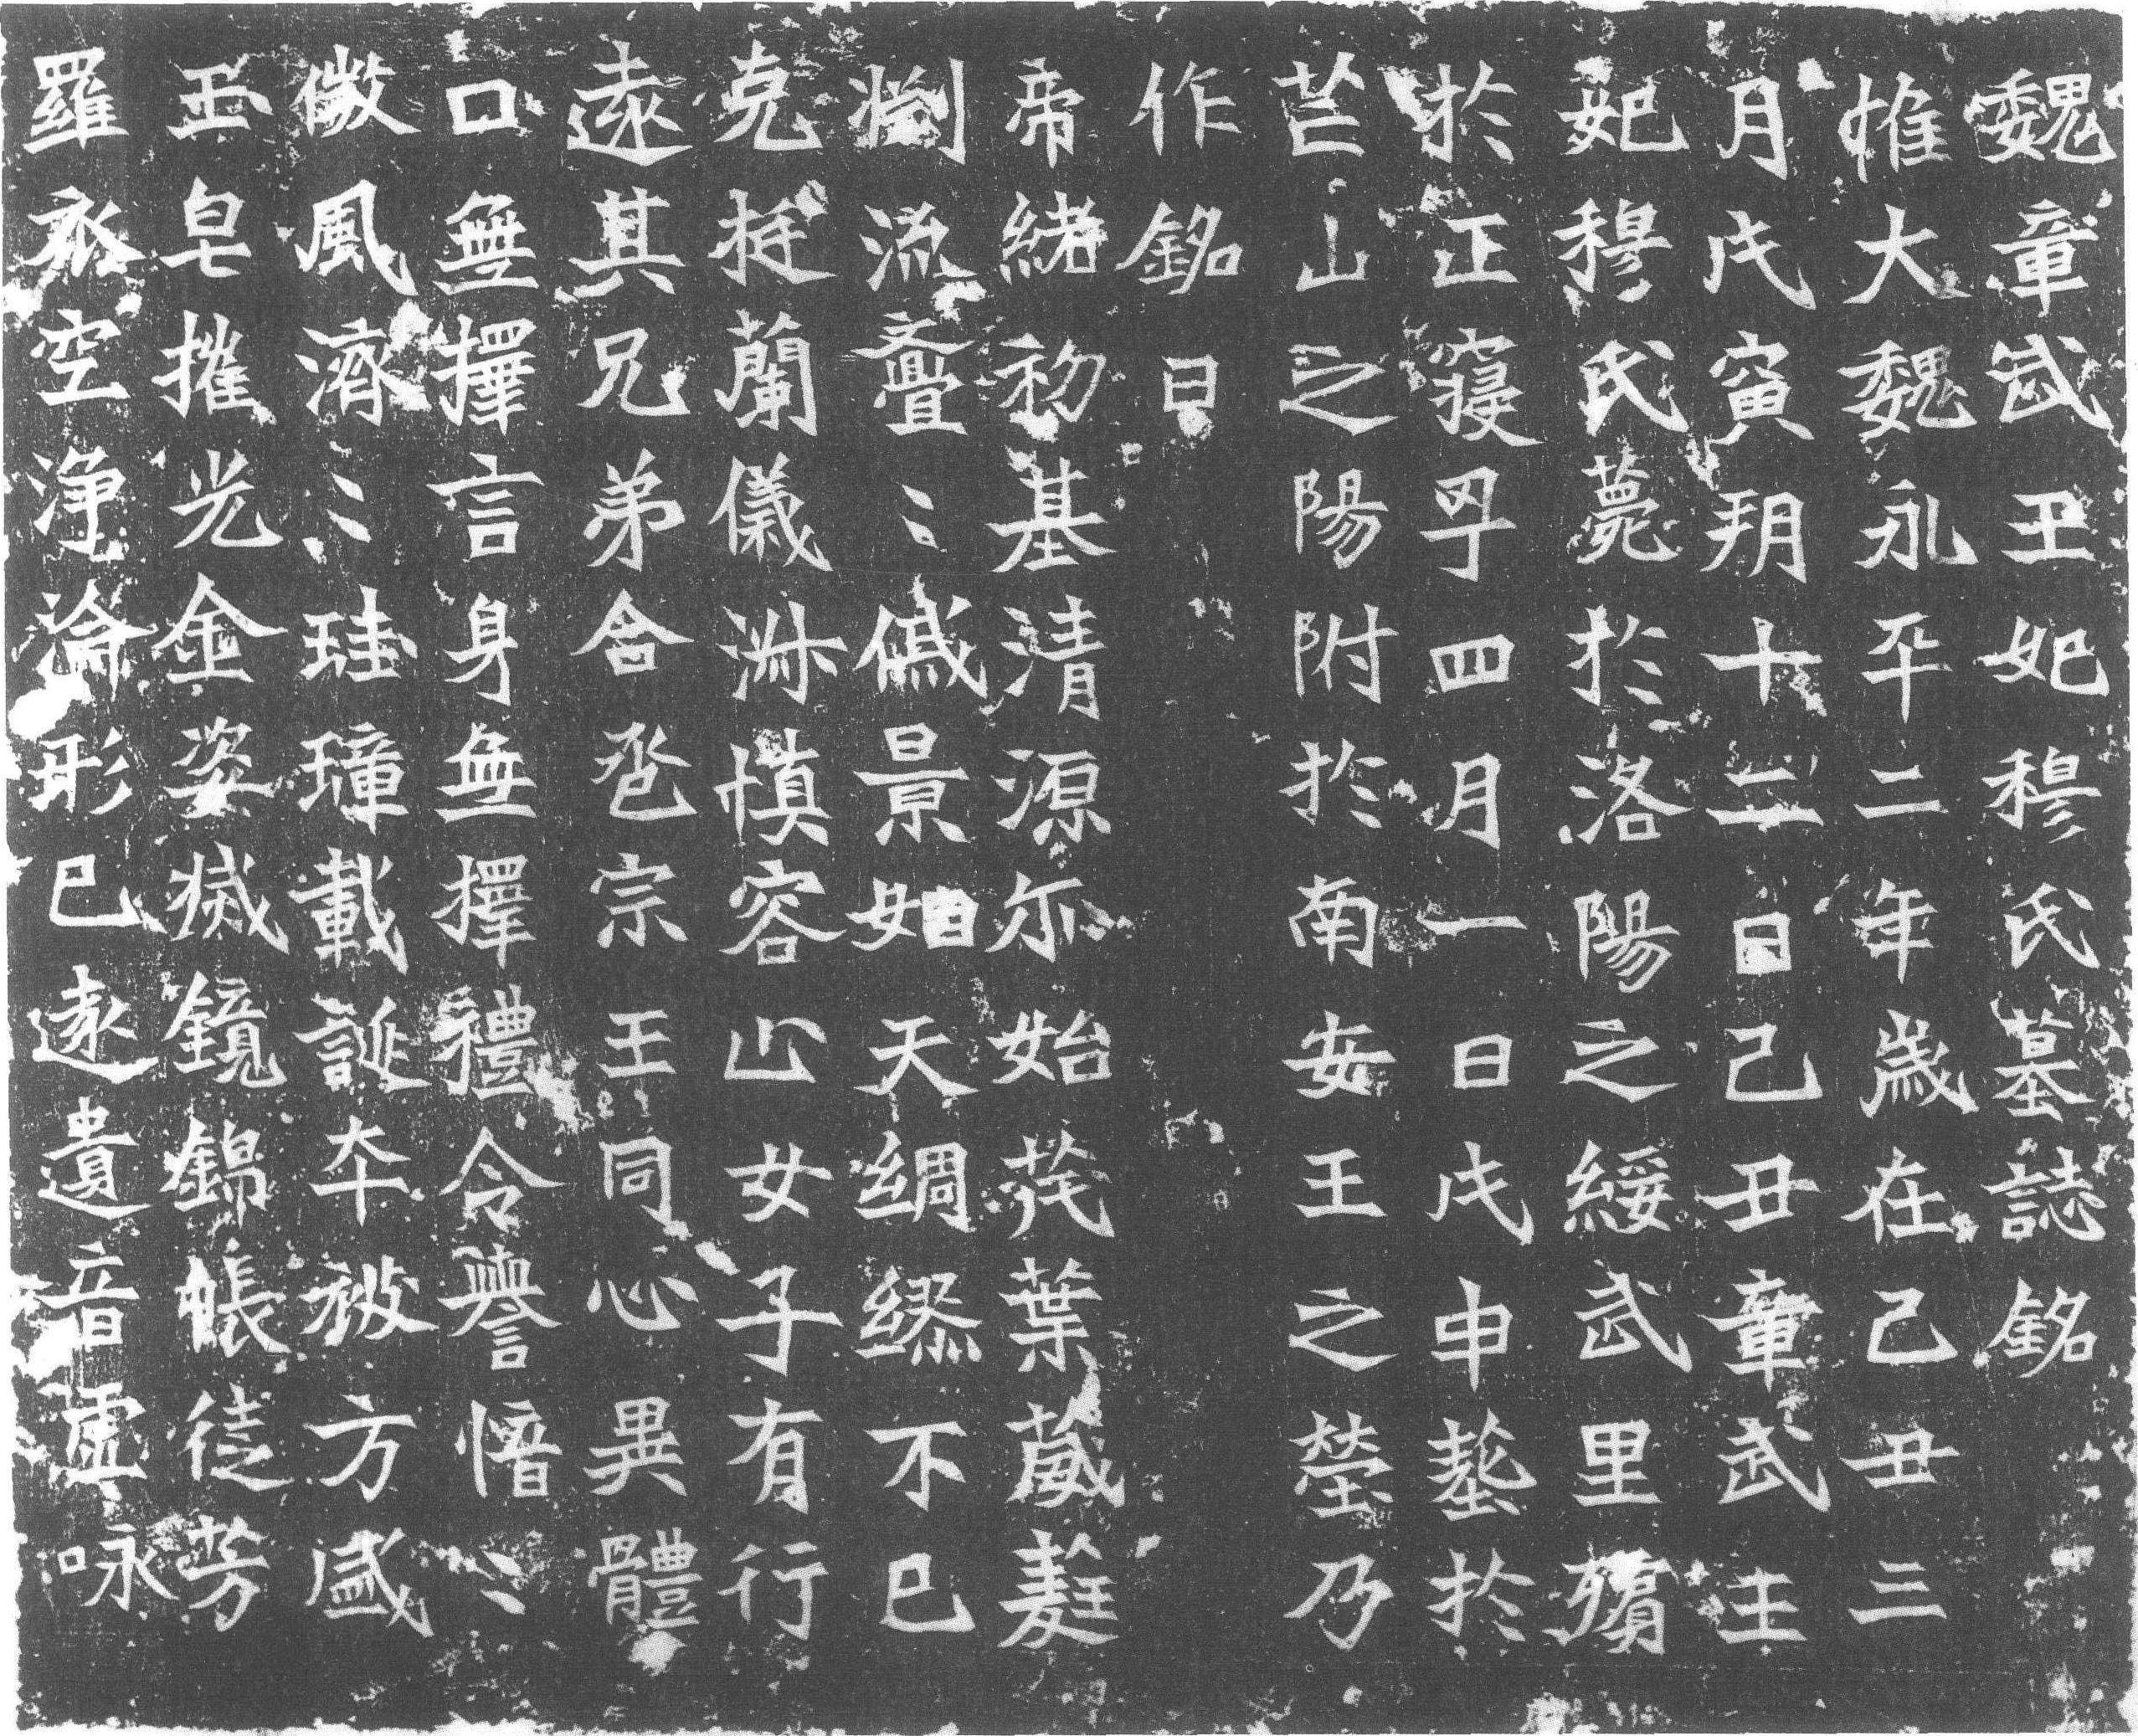 魏章武王妃穆氏墓誌銘
惟大魏永平二年歲在己丑三
月戊寅朔十二日己丑章武王
妃穆氏薨於洛陽之綏武里殯
於正寢粤四月一日戊申塟於
芒山之陽附於南安王之塋乃
作銘曰
帝緒初基清源尒始茂葉葳蕤
瀏流亹〻儀景如天綢繆不已
克挺蘭儀淋慎容止女子有行
遠其兄弟合巹宗王同心異體
口無擇言身無擇禮令譽愔〻
徽風濟〻珪璋載誕本被方盛
玉皂摧光金姿滅鏡錦帳徒芳
羅衣空净淪形已遠遺音虛咏